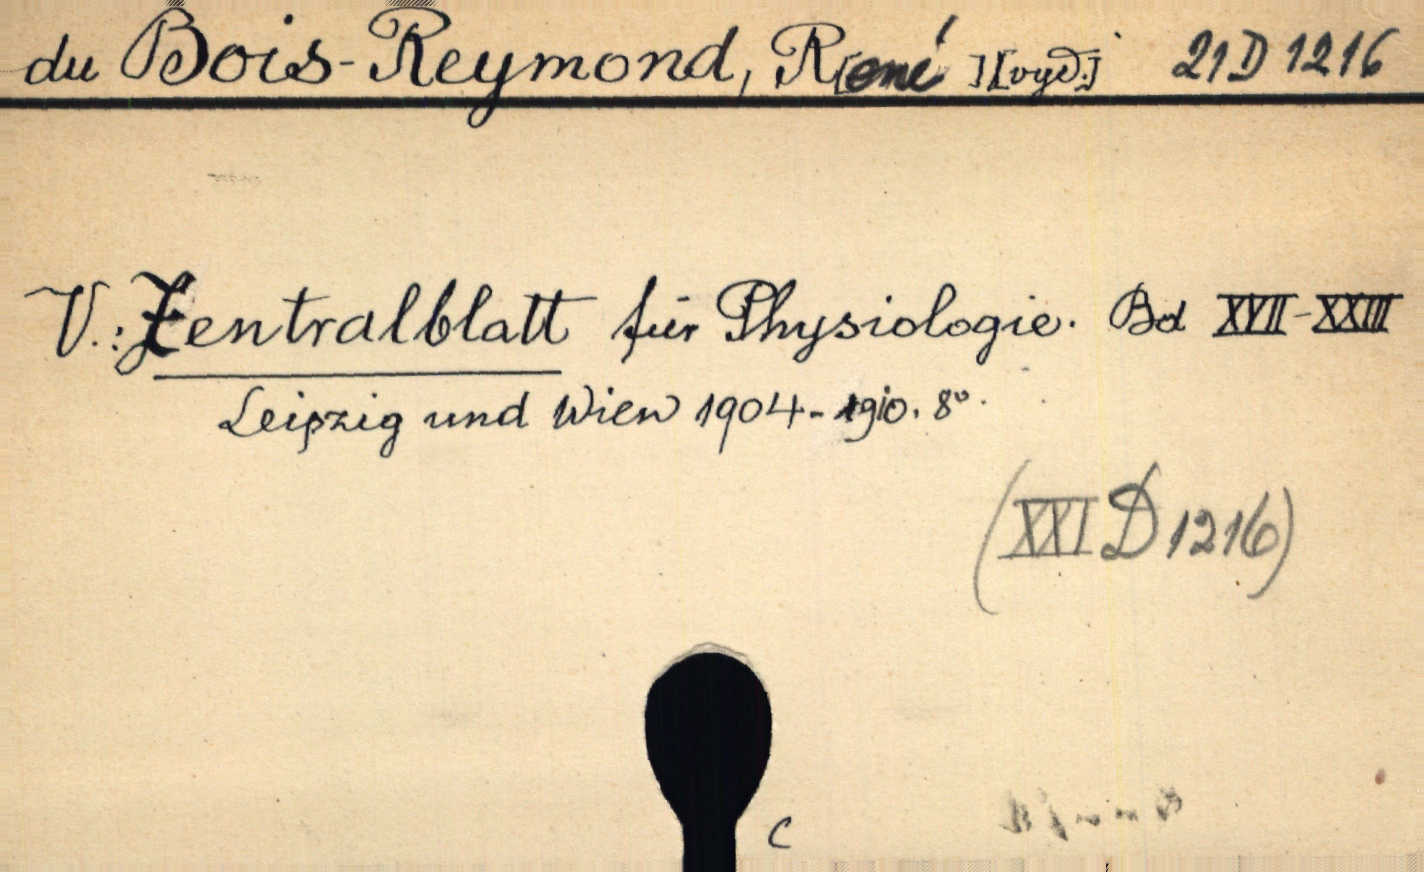 du Bois-Reymond, R[ené][vyd.] 21 D 1216
V.: Zentralblatt für Physiologie. Bd XVII-XXIII
Leipzig und Wien 1904-1910. 8°.
(XXI D 1216)
C